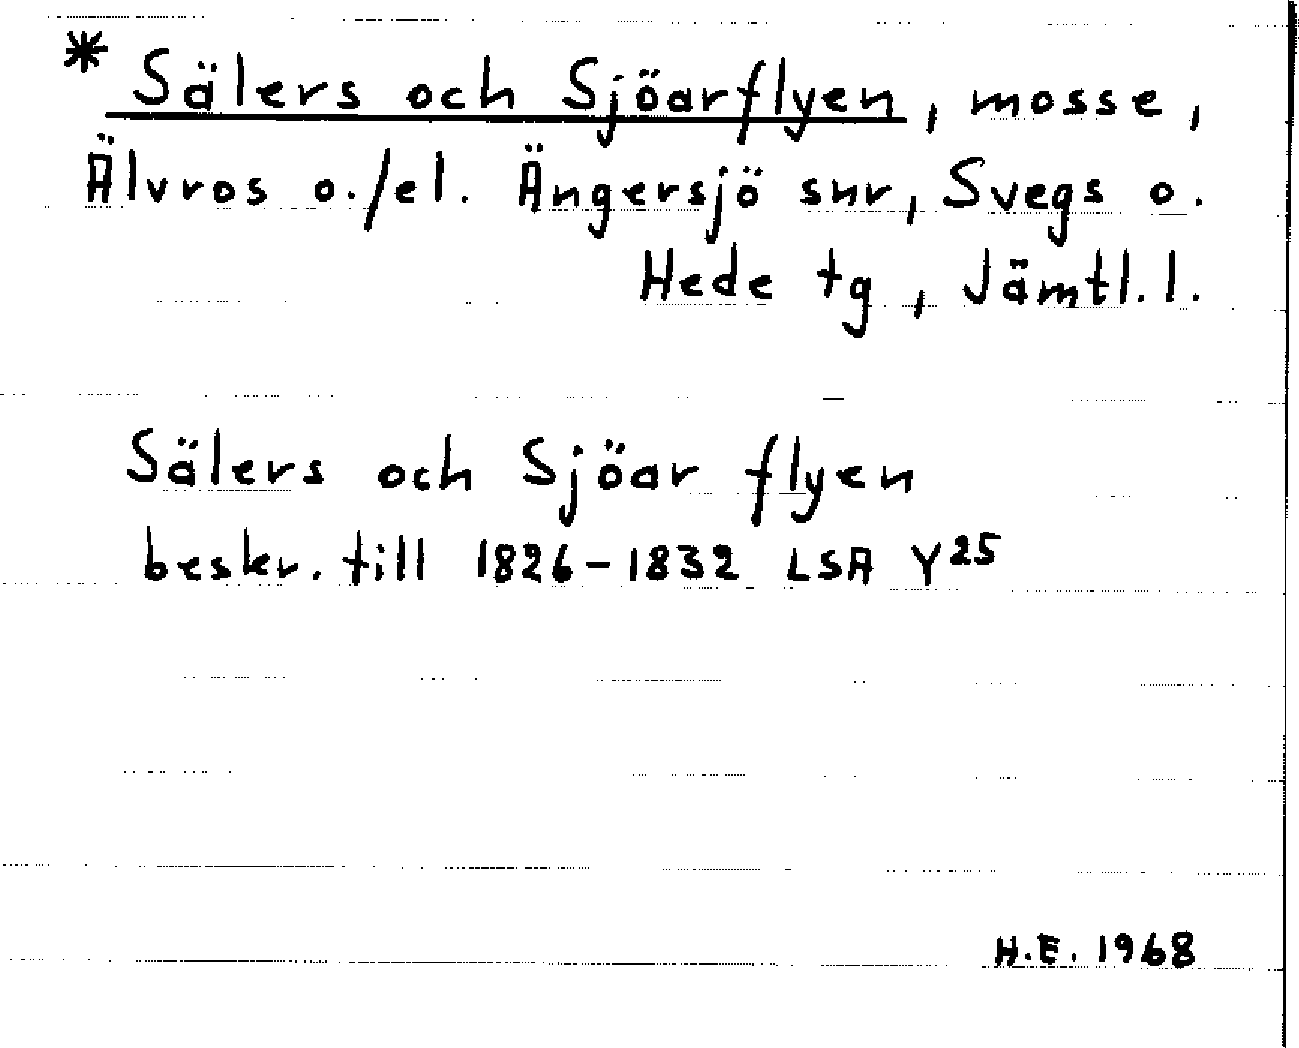 * Sälers och Sjöarflyen, mosse,
Älvros o./el. Ängersjö snr, Svegs o.
Hede tg, Jämtl. l.
Sälers och Sjöar flyen
beskr. till 1826-1832 LSA Y25
H.E. 1968